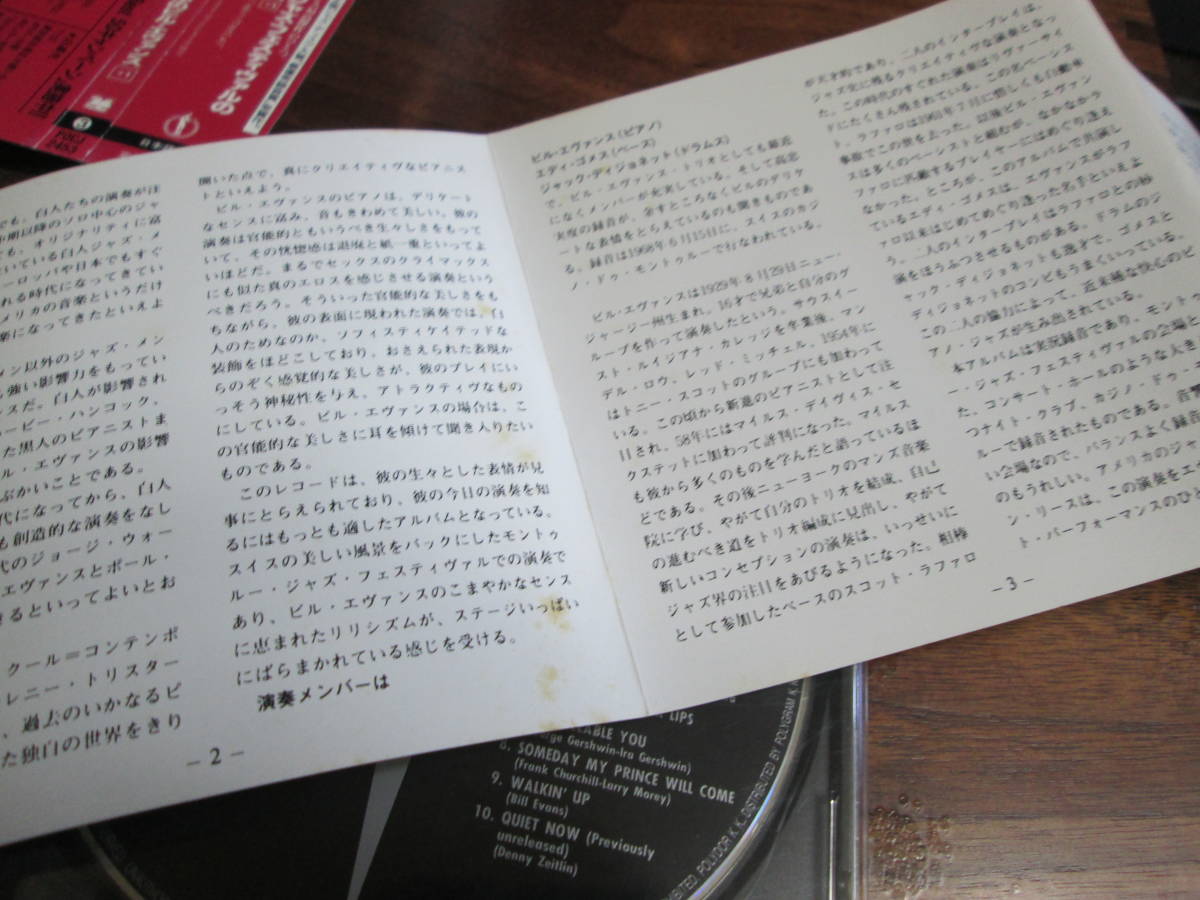 たちの演奏が注
期以降のソロ中心のジャ
でも、オリジナリティに富
ている白人ジャズ・メ
ーロッパや日本でもすぐ
れる時代になってきてい
メリカの音楽というだけ
楽になってきたといえよ
メン以外のジャズ・メン
も強い影響力をもってい
ンスだ。白人が影響され
ービー・ハンコック、
た黒人のピアニストま
ル・エヴァンスの影響
ぶかいことである。
代になってから、白人
も創造的な演奏をなし
代のジョージ・ウォー
エヴァンスとポール・
きるといってよいとお
クール＝コンテンポ
レニー・トリスター
、過去のいかなるピ
た独自の世界をきり
開いた点で、真にクリエイティヴなピアニス
トといえよう。
ビル・エヴァンスのピアノは、デリケート
なセンスに富み、音もきわめて美しい。彼の
演奏は官能的ともいうべき生々しさをもって
いて、その恍惚感は退廃と紙一重といってよ
いほどだ。まるでセックスのクライマックス
にも似た真のエロスを感じさせる演奏という
べきだろう。そういった官能的な美しさをも
ちながら、彼の表面に現われた演奏では、白
人のためなのか、ソフィスティケイテッドな
装飾をほどこしており、おさえられた表現か
らのぞく感覚的な美しさが、彼のプレイにい
っそう神秘性を与え、アトラクティヴなもの
にしている。ビル・エヴァンスの場合は、こ
の官能的な美しさに耳を傾けて聞き入りたい
ものである。
このレコードは、彼の生々とした表情が見
事にとらえられており、彼の今日の演奏を知
るにはもっとも適したアルバムとなっている。
スイスの美しい風景をバックにしたモントゥ
ルー・ジャズ・フェスティヴァルでの演奏で
あり、ビル・エヴァンスのこまやかなセンス
に恵まれたリリシズムが、ステージいっぱい
にばらまかれている感じを受ける。
演奏メンバーは
－2－
ビル・エヴァンス（ピアノ）
エディ・ゴメス（ベース）
ジャック・ディジョネット（ドラムス）
で、ビル・エヴァンス・トリオとしても最近
になくメンバーが充実している。そして高忠
実度の録音が、余すところなくビルのデリケ
ートな表情をとらえているのも聞きものであ
る。録音は1968年6月15日に、スイスのカジ
ノ・ドゥ・モントゥルーで行なわれている。
ビル・エヴァンスは1929年8月29日ニュー・
ジャージー州生まれ、16才で兄弟と自分のグ
ループを作って演奏したという。サウスイー
スト・ルイジアナ・カレッジを卒業後、マン
デル・ロウ、レッド・ミッチェル、1954年に
はトニー・スコットのグループにも加わって
いる。この頃から新進のピアニストとして注
目され、'58年にはマイルス・デイヴィス・セ
クステットに加わって評判になった。マイルス
も彼から多くのものを学んだと語っているほ
どである。その後ニューヨークのマンズ音楽
院に学び、やがて自分のトリオを結成、自己
の進むべき道をトリオ編成に見出し、やがて
新しいコンセプションの演奏は、いっせいに
ジャズ界の注目をあびるようになった。相棒
として参加したベースのスコット・ラファロ
が天才的であり、二人のインタープレイは、
ジャズ史に残るクリエイティヴな演奏となっ
た。この時代のすぐれた演奏はリヴァーサイ
ドにたくさん残されている。この名ベーシス
ト、ラファロは1961年7月に惜しくも自動車
事故でこの世を去った。以後ビル・エヴァン
スは多くのベーシストと組むが、なかなかラ
ファロに匹敵するプレイヤーにはめぐり逢え
なかった。ところが、このアルバムで共演し
ているエディ・ゴメスは、エヴァンスがラフ
ァロ以来はじめてめぐり逢った名手といえよ
う。二人のインタープレイはラファロとの妙
演をほうふつさせるものがある。ドラムのジ
ャック・ディジョネットも逸才で、ゴメスと
ディジョネットのコンビもうまくいっている。
この二人の協力によって、近来稀な快心のピ
アノ・ジャズが生み出されている。
本アルバムは実況録音であり、モントゥ
ー・ジャズ・フェスティヴァルの会場と
た、コンサート・ホールのような大き
つナイト・クラブ、カジノ・ドゥ・
ルーで録音されたものである。音響
い会場なので、バランスよく録音
のもうれしい。アメリカのジャズ
ン・リースは、この演奏をエ
ト・パーフォーマンスのひ
－3－
LIPS
ABLE YOU
ge Gershwin-Ira Gershwin)
8. SOMEDAY MY PRINCE WILL COME
(Frank Churchill-Larry Morey)
9. WALKIN' UP
(Bill Evans)
10. QUIET NOW (Previously
unreleased)
(Denny Zeitlin)
DISTRIBUTED BY POLYDOR K.K.
BY POLYGRAM K.